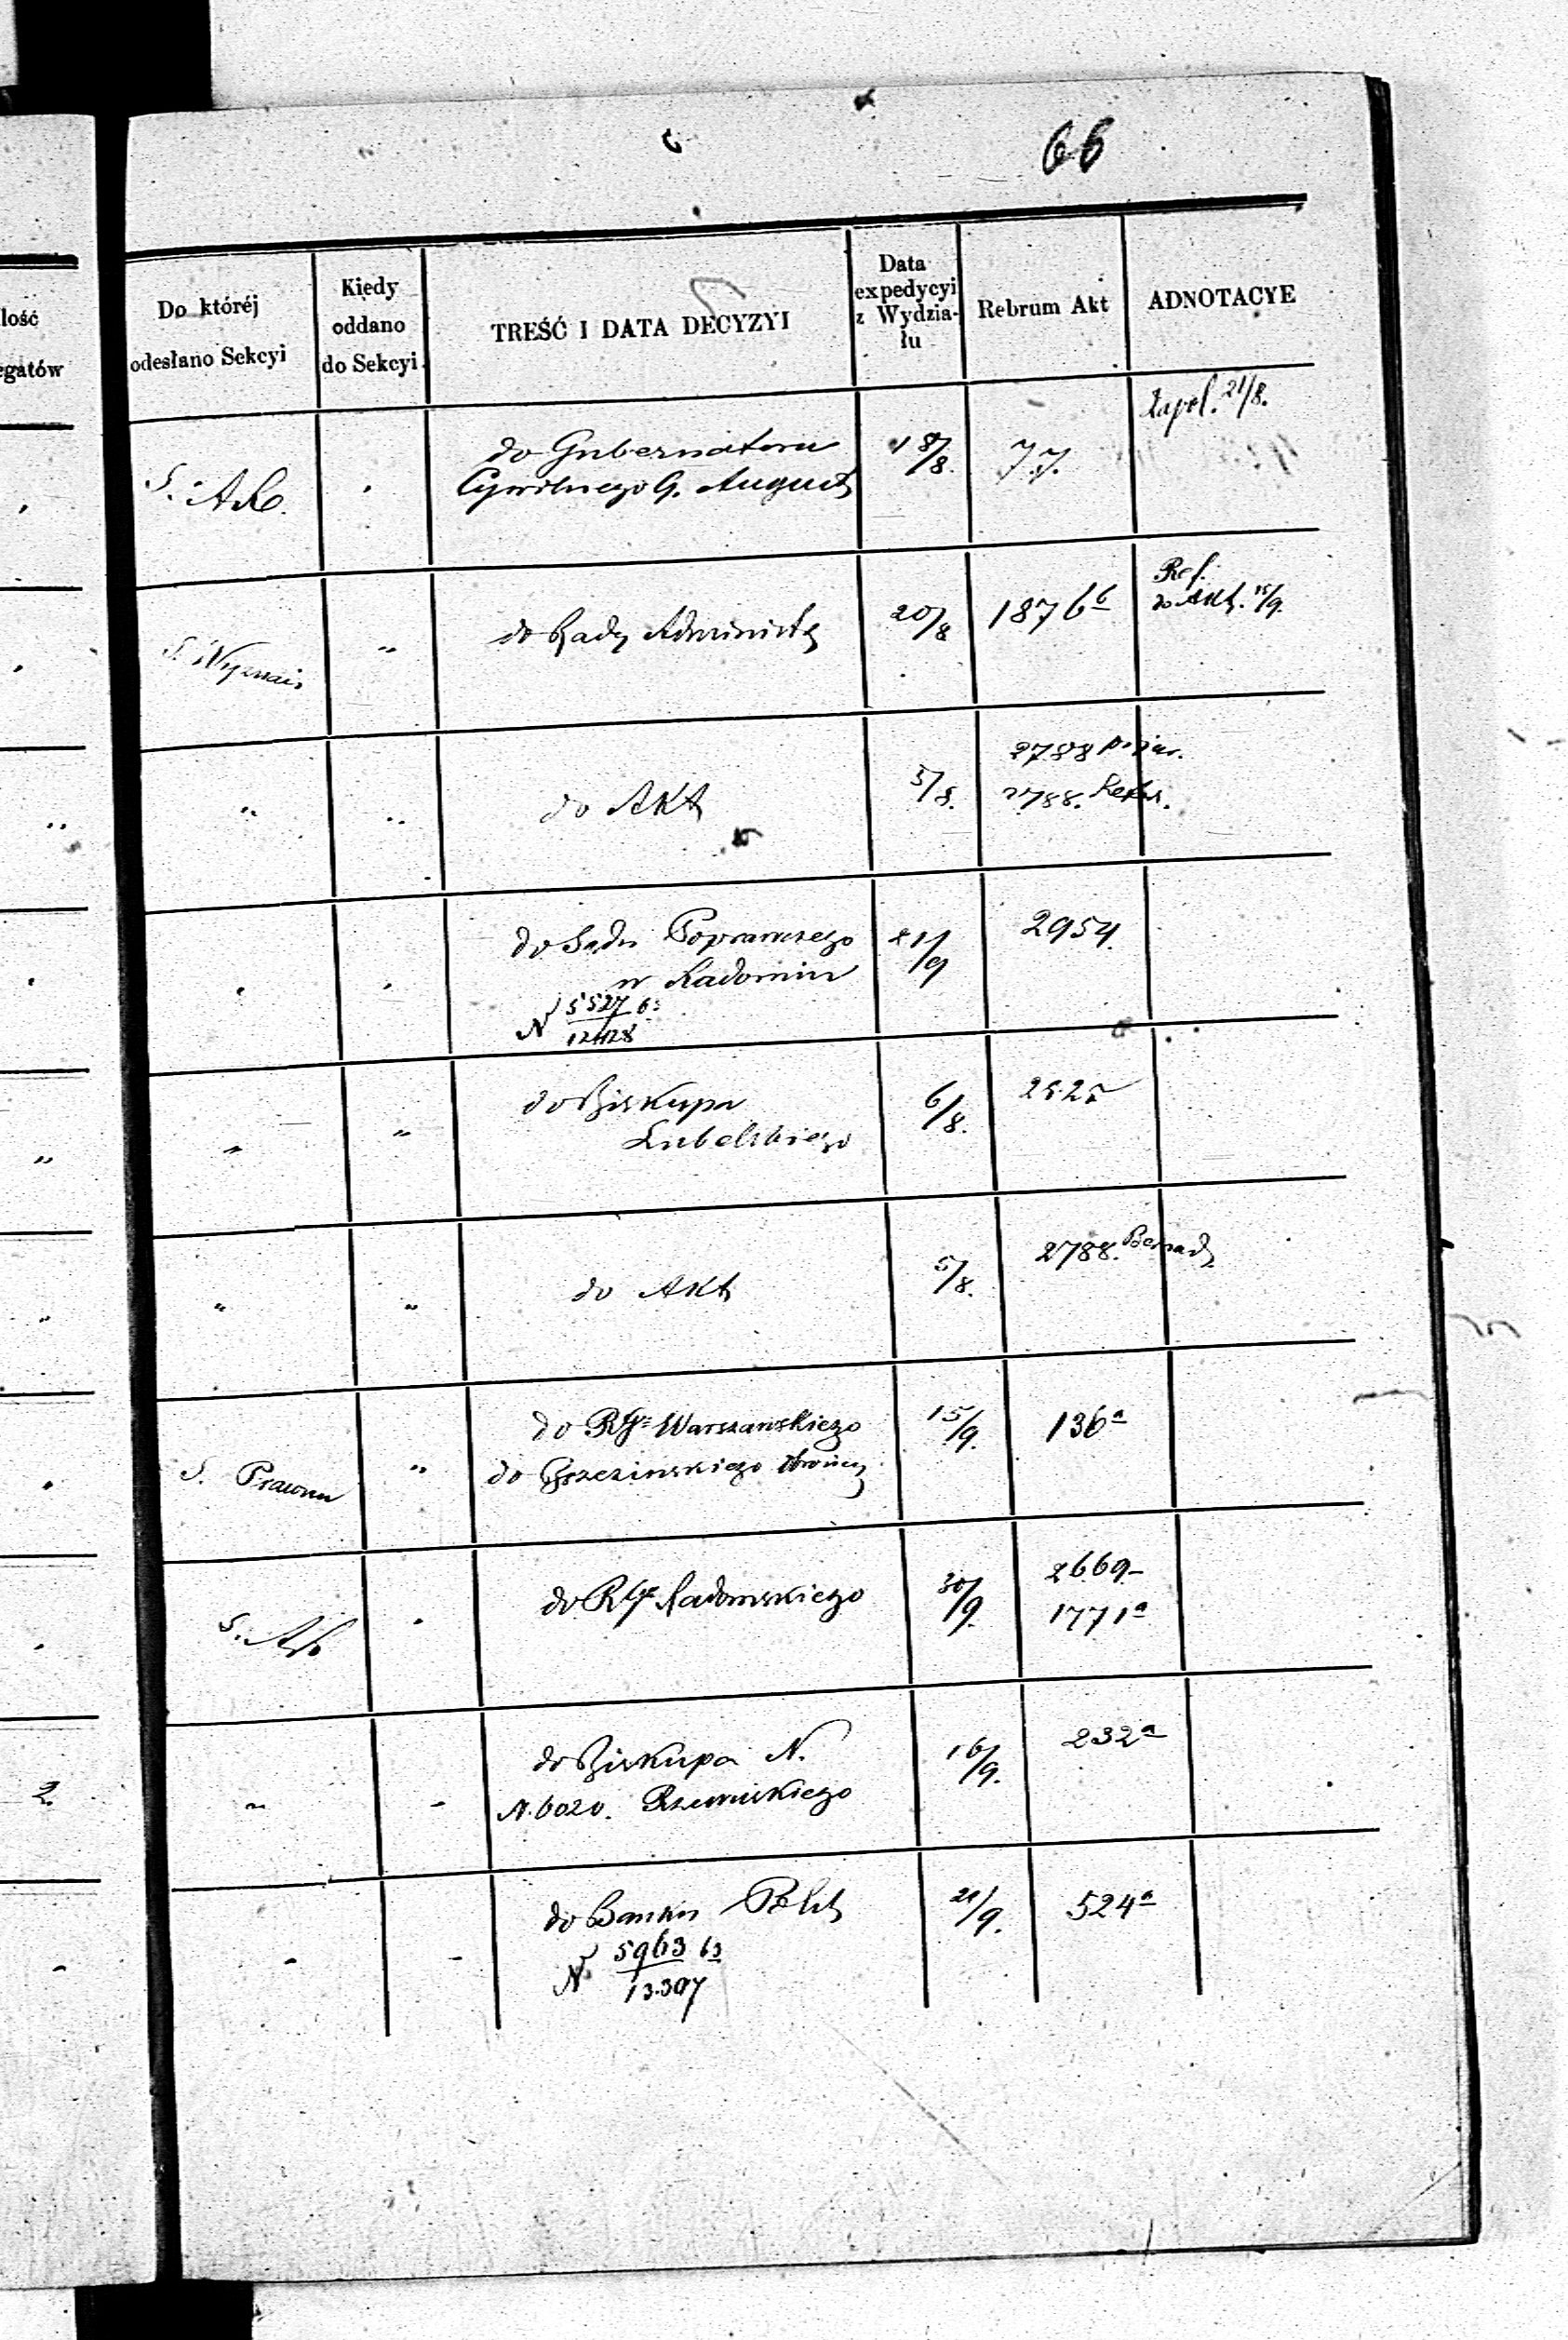 66
lość
egatów
Do któréj
odesłano Sekcyi
Kiedy
oddano
do Sekcyi
TREŚĆ I DATA DECYZYI
Data
expedycyi
z Wydzia-
łu
Rebrum Akt
ADNOTACYE
S.
do Gubernatora
Cywilnego G. August
18/8.
77.
21/8.
S. Wyznań
"
do Rady Administ
20/8
1876 b
Ref.
do Akt. 15/9.
"
"
do Akt
5/8.
2788
2788.
do Sądu Poprawczego
w Radomiu
N 5527 63
12428
21/9
2954.
"
"
do Biskupa
Lubelskiego
6/8.
"
"
do Akt
5/8.
2788. Bernad
S. Prawna
"
do RG Warszawskiego
do Brzezinskiego
15/9.
136 a
S.
do RG Radomskiego
30/9.
2669
1771 a
"
"
do Biskupa N.
N. 6020.
16/9.
232 a
2
do Banku Polsk
N 5963 63
13.307
21/9.
524 a